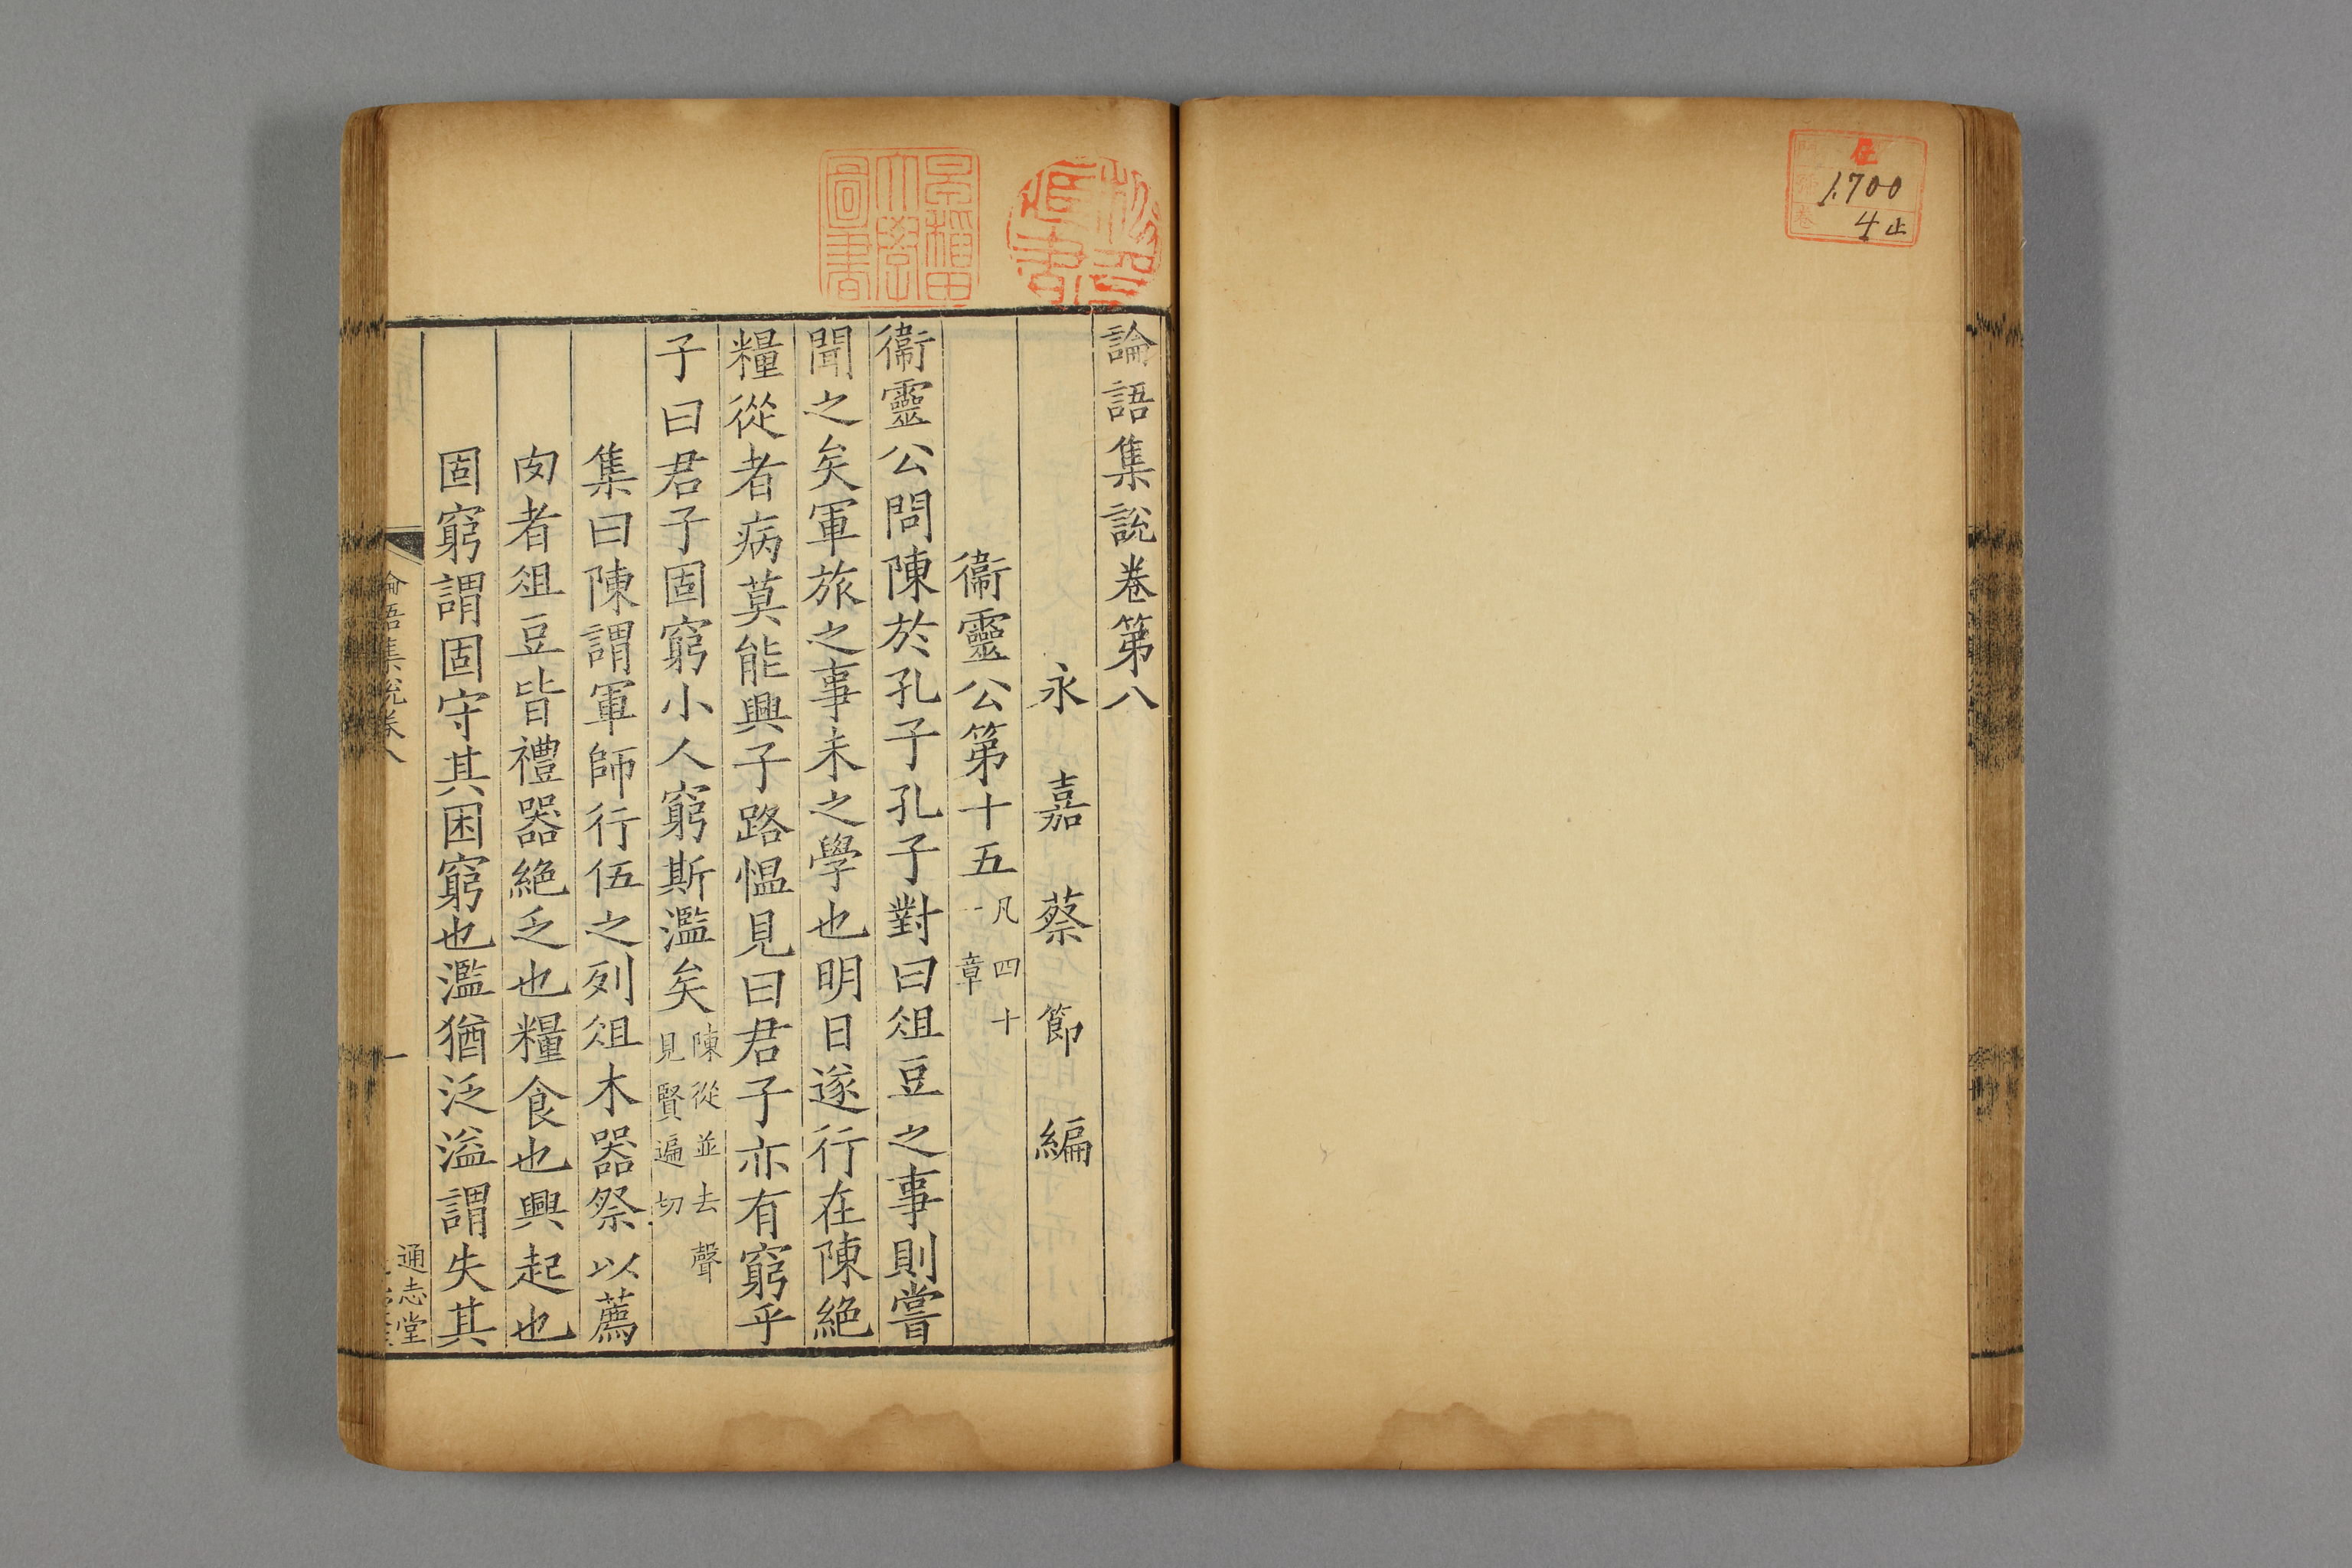 1700
4止
早稲田大學圖書
論語集說卷第八
永嘉蔡節編
衞靈公第十五凡四十一章
衞靈公問陳於孔子孔子對曰俎豆之事則嘗
聞之矣軍旅之事未之學也明日遂行在陳絶
糧從者病莫能興子路愠見曰君子亦有窮乎
子曰君子固窮小人窮斯濫矣陳從並去聲見賢遍切
集曰陳謂軍師行伍之列俎木器祭以薦
肉者俎豆皆禮器絶乏也糧食也興起也
固窮謂固守其困窮也濫猶泛溢謂失其
論語集說卷八
一
通志堂